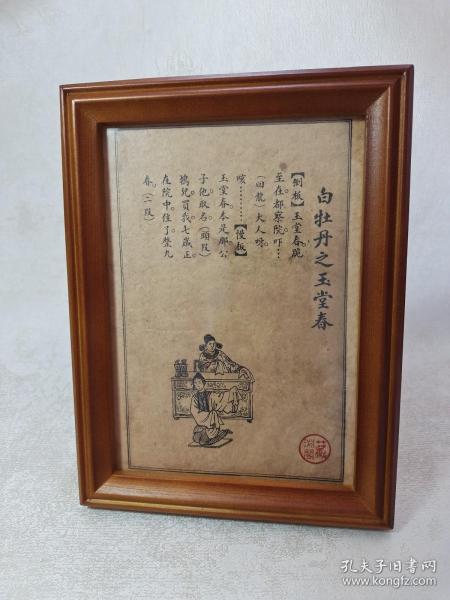 白牡丹之玉堂春
【倒板】玉堂春跪
至在都察院吓…
(回龍)大人呀
咳………【慢板】
玉堂春本是那公
子他取名(頭段)
鴇兒買我七歲正
在院中住了整九
春。(二段)
孔夫子旧书网
www.kongfz.com